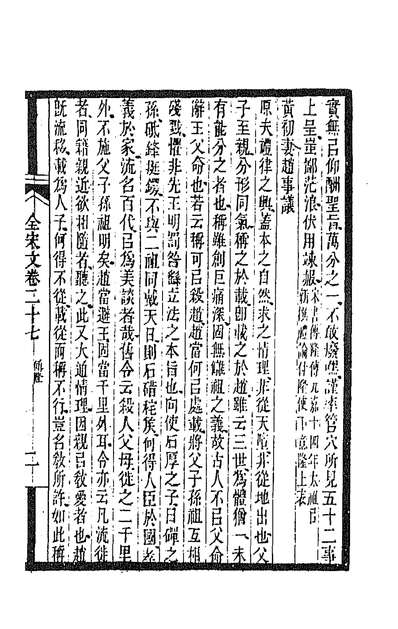 實無㠯仰酬聖旨萬分之一不敢廢嘿謹率管穴所見五十二事
上呈蚩鄙茫浪伏用竦赧宋書傅隆傳元嘉十四年太祖㠯新撰禮論付隆使下意隆上表
黃初妻趙事議
原夫禮律之興蓋本之自然求之情理非從天墮非從地出也父
子至親分形同氣稱之於載即載之於趙雖云三世為體僧一未
有能分之者也稱雖創巨痛深固無讎祖之義故古人不㠯父命
辭王父命也若云稱可㠯殺趙趙當何㠯處載將父子孫祖互相
殘戮懼非先王明罰咎繇立法之本旨也向使石厚之子日磾之
孫砥鋒挺鍔不與二祖同戴天日則石碏秺侯何得人臣於國孝
義於家流名百代㠯為美談者哉舊令云殺人父母徙之二千里
外不施父子孫祖明矣趙當避王固當千里外耳令亦云凡流徙
者同籍親近欲相隨者聽之此又大通情理因親㠯敎愛者也趙
既流移載為人子何得不從載從而稱不行豈名敎所許如此稱
全宋文卷二十七 傅隆